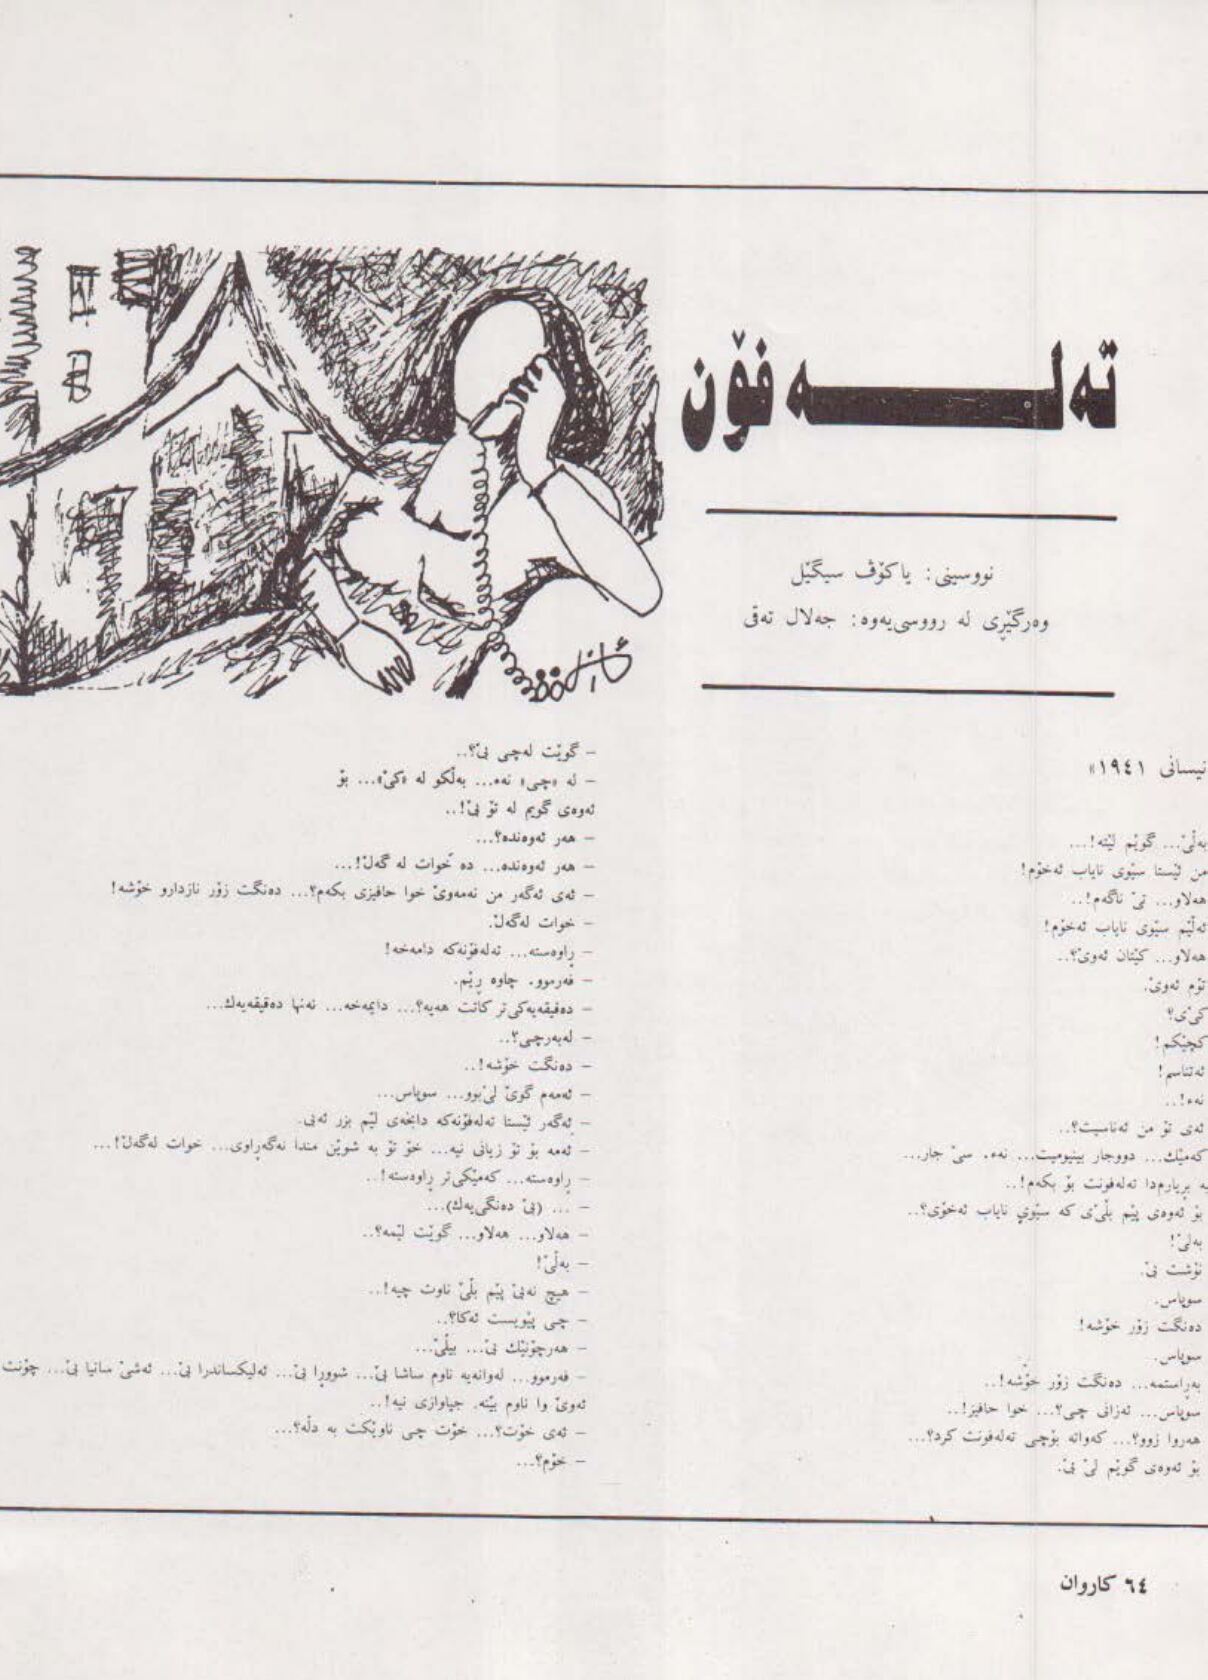 تەلەفۆن
نووسینی: یاکۆڤ سیگێل
وەرگێڕی لە رووسی‌یەوە: جەلال تەقی
نیسانی ١٩٤١»
بەڵێ... گوێم لێتە!...
من ئێستا سێوی نایاب ئەخۆم!
هەلاو... تێ ناگەم!..
ئەڵێم سێوی نایاب ئەخۆم!
هەلاو... کێتان ئەوێ؟..
تۆم ئەوێ.
کێ‌ی؟
کچێکم!
ئەتناسم!
نەء!..
ئەی تۆ من ئەناسیت؟..
کەمێك... دووجار بینیومیت... نەء، سێ جار...
بۆ ئەوەی پێم بڵێ‌ی کە سێوی نایاب ئەخۆی؟..
بەڵێ!
نۆشت بێ.
سوپاس.
دەنگت زۆر خۆشە!
سوپاس.
بەڕاستمە... دەنگت زۆر خۆشە!..
سوپاس... ئەزانی چی؟... خوا حافیز!..
هەروا زوو؟... کەواتە بۆچی تەلەفونت کرد؟...
بۆ ئەوەی گوێم لێ بێ.
– گوێت لەچی بێ؟..
– لە «چی» نەء... بەڵکو لە «کێ»... بۆ
ئەوەی گویم لە تۆ بێ!..
– هەر ئەوەندە؟...
– هەر ئەوەندە... دە خوات لە گەڵ!...
– ئەی ئەگەر من نەمەوێ خوا حافیزی بکەم؟... دەنگت زۆر نازدارو خۆشە!
– خوات لەگەڵ.
– ڕاوەستە... تەلەفۆنەکە دامەخە!
– فەرموو. چاوە ڕێم.
– دەقیقەیەکی‌تر کاتت هەیە؟... دایمەخە... تەنها دەقیقەیەك...
– لەبەرچی؟..
– دەنگت خۆشە!..
– ئەمەم گوێ لێ‌بوو... سوپاس...
– ئەگەر ئێستا تەلەفۆنەکە دابخەی لێم بزر ئەبی.
– ئەمە بۆ تۆ زیانی نیە... خۆ تۆ بە شوێن مندا نەگەڕاوی... خوات لەگەڵ!...
– ڕاوەستە... کەمێکی‌تر ڕاوەستە!..
– ... (بێ دەنگی‌یەك)...
– هەلاو... هەلاو... گوێت لێمە؟..
– بەڵێ!
– هیچ نەبێ پێم بڵێ ناوت چیە!..
– چی پێویست ئەکا؟..
– هەرچۆنێك بێ... بیڵێ...
– فەرموو... لەوانەیە ناوم ساشا بێ... شوورا بێ... ئەلیکساندرا بێ... ئەشێ سانیا بێ... چۆنت
ئەوێ وا ناوم بێتە. جیاوازی نیە!..
– ئەی خۆت؟... خۆت چی ناوێکت بە دڵە؟...
– خۆم؟...
٦٤ کاروان